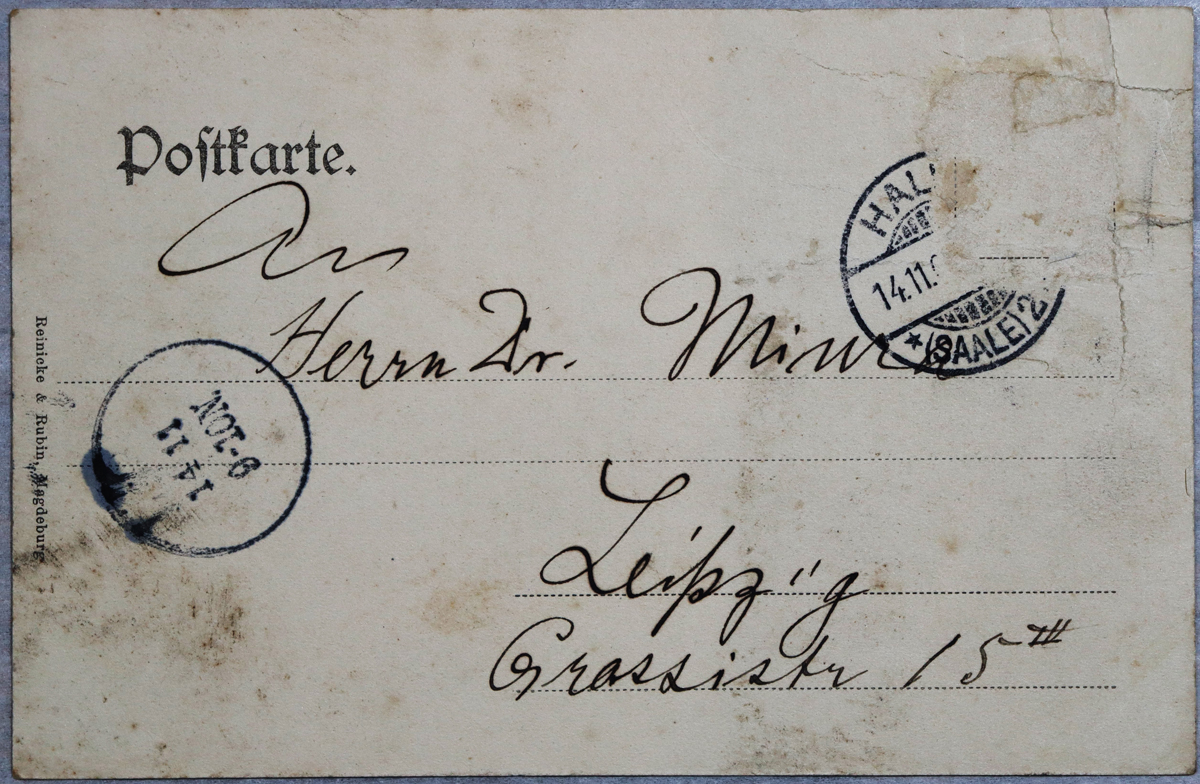 Postkarte.
An
Herrn Dr.
Leipzig
Grassistr 15 III
HAL
14.11.
*(SAALE) 2
14 11
9-10N.
Reinicke & Rubin, Magdeburg